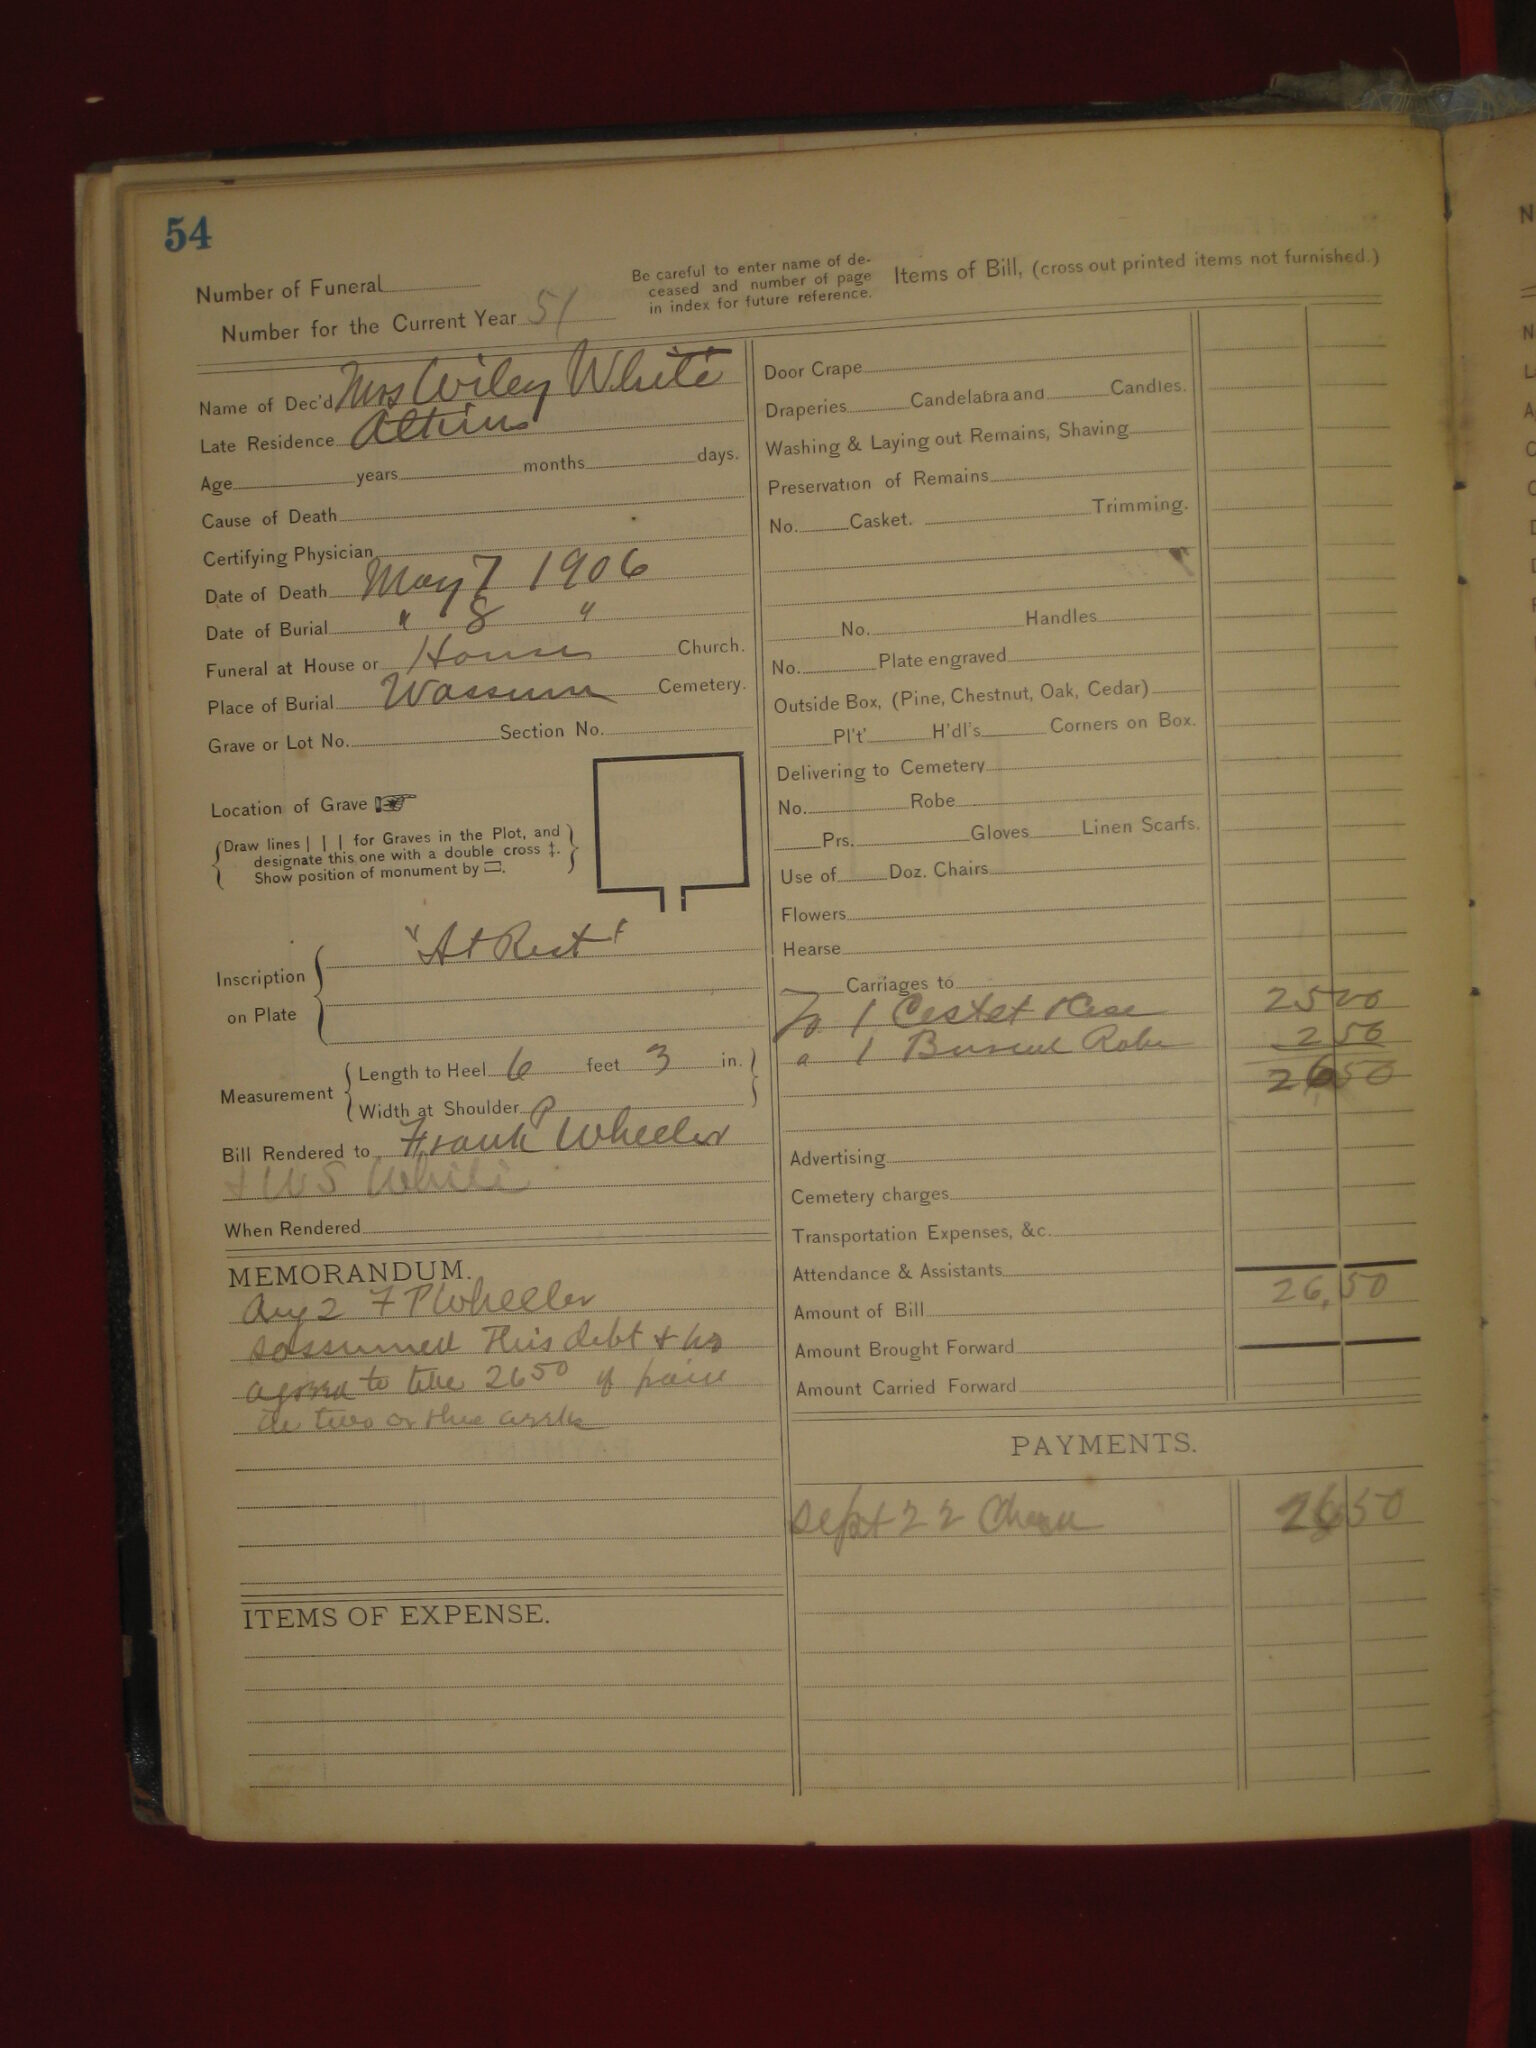 54
Number of Funeral
Number for the Current Year 51
Be careful to enter name of de-
ceased and number of page
in index for future reference.
Items of Bill, (cross out printed items not furnished.)
Name of Dec'd Mrs Wiley White
Late Residence Atkins
Age years months days.
Cause of Death
Certifying Physician
Date of Death May 7 1906
Date of Burial " 8 "
Funeral at House or House Church.
Place of Burial Wassum Cemetery.
Grave or Lot No. Section No.
Location of Grave
Draw lines | | | for Graves in the Plot, and
designate this one with a double cross ‡.
Show position of monument by ▭.
Inscription
on Plate
"At Rest"
Measurement
Length to Heel 6 feet 3 in.
Width at Shoulder
Bill Rendered to Frank P Wheeler
+ W S White
When Rendered
MEMORANDUM.
Aug 2 F P Wheeler
assumed this debt +
agreed to take 26 50 if paid
in two or three weeks
ITEMS OF EXPENSE.
Door Crape
Draperies Candelabra and Candles.
Washing & Laying out Remains, Shaving
Preservation of Remains
No. Casket. Trimming.
No. Handles
No. Plate engraved
Outside Box, (Pine, Chestnut, Oak, Cedar)
Pl't' H'dl's Corners on Box.
Delivering to Cemetery
No. Robe
Prs. Gloves Linen Scarfs.
Use of Doz. Chairs
Flowers
Hearse
Carriages to
To 1 Casket Case 25 00
" 1 Burial Robe 2 50
26 50
Advertising
Cemetery charges
Transportation Expenses, &c.
Attendance & Assistants
Amount of Bill 26,50
Amount Brought Forward
Amount Carried Forward
PAYMENTS.
Sept 22 26 50